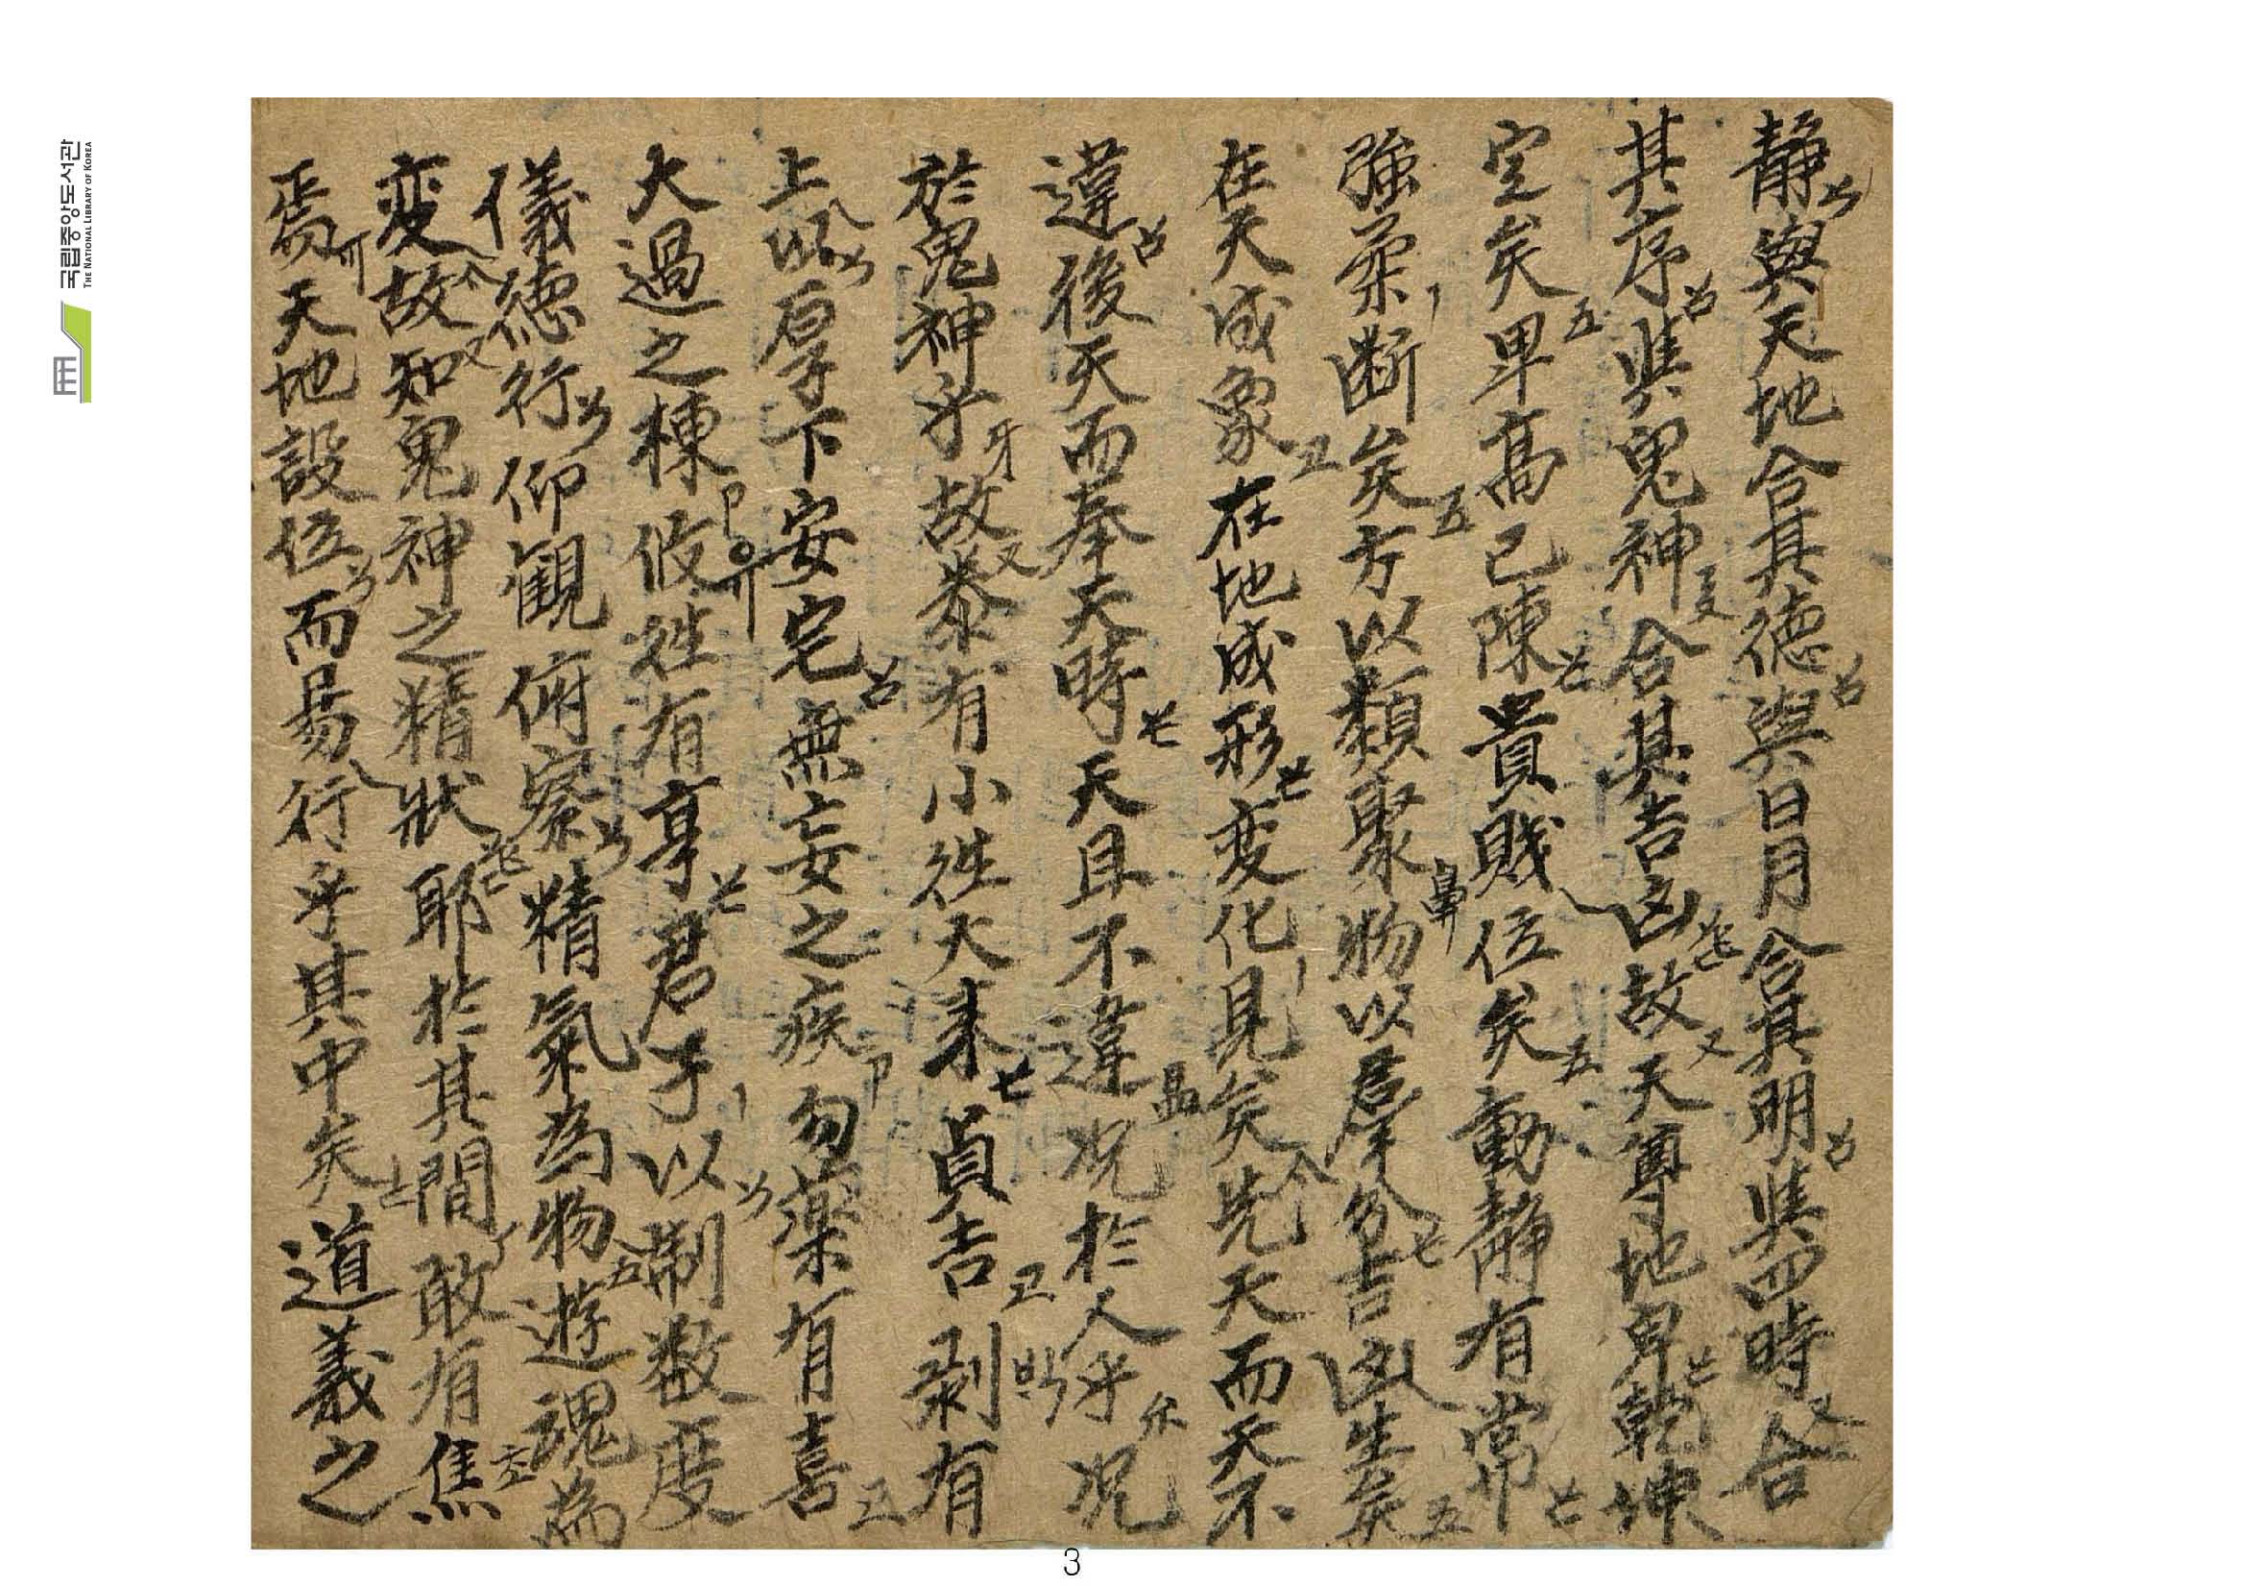 静與天地合其德與日月合其明與四時合
其序與鬼神合其吉凶故天尊地卑乾坤
定矣卑高已陳貴賤位矣動静有常
強柔断矣方以類聚物以羣分吉凶生矣
在天成象在地成形变化見矣先天而天不
違後天而奉天時天且不違况於人乎况
於鬼神乎故泰有小徃大来貞吉剥有
上以厚下安宅無妄之疾勿藥有喜
大過之棟攸徃有亨君子以制数度
儀德行仰觀俯察精氣為物遊魂為
変故知鬼神之精狀耶於其間敢有焦
焉天地設位而易行乎其中矣道義之
국립중앙도서관
THE NATIONAL LIBRARY OF KOREA
3